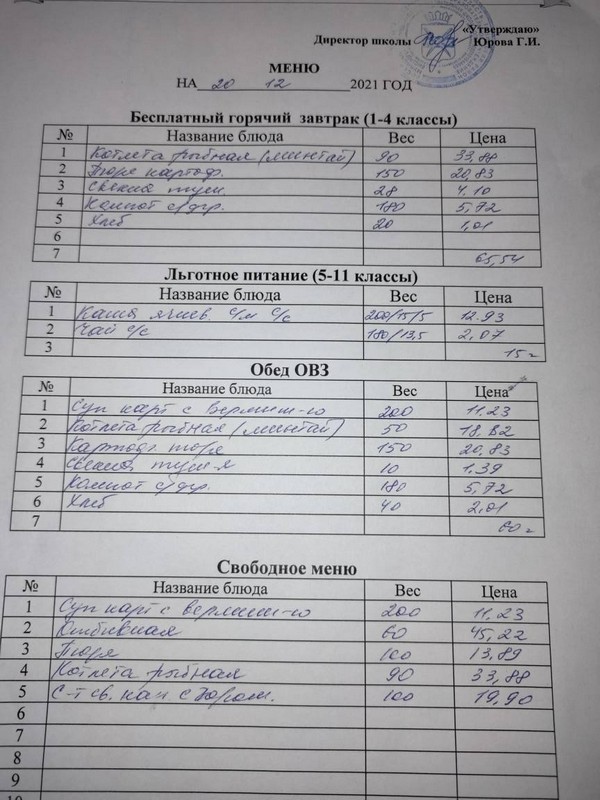 «Утверждаю»
Директор школы Юрова Г.И.
МЕНЮ
НА 20 12 2021 ГОД
Бесплатный горячий завтрак (1-4 классы)
№ Название блюда Вес Цена
1 Котлета рыбная (минтай) 90 33,88
2 Пюре картоф. 150 20,83
3 Свекла туш. 28 4,10
4 Компот с/фр. 180 5,72
5 Хлеб 20 1,01
6
7 65,54
Льготное питание (5-11 классы)
№ Название блюда Вес Цена
1 Каша ячнев с/м с/с 200/15/5 12.93
2 Чай с/с 180/13,5 2,07
3 15=
Обед ОВЗ
№ Название блюда Вес Цена
1 Суп карт с вермиш-ю 200 11.23
2 Котлета рыбная (минтай) 50 18.82
3 Картоф. пюре 150 20,83
4 Свекла туш-я 10 1.39
5 Компот с/фр. 180 5,72
6 Хлеб 40 2,01
7 60=
Свободное меню
№ Название блюда Вес Цена
1 Суп карт с вермиш-ю 200 11,23
2 Отбивная 60 45,22
3 Пюре 100 13,89
4 Котлета рыбная 90 33,88
5 С-т св. кап с 100 19,90
6
7
8
9
10